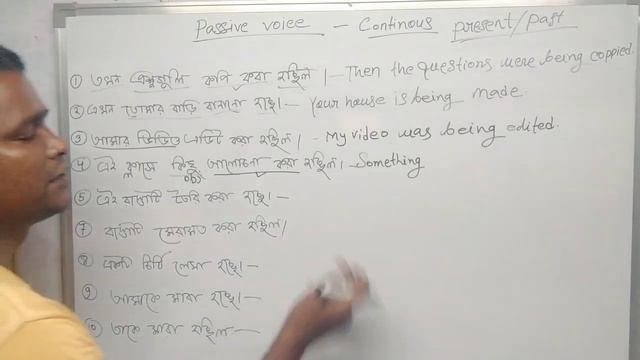 Passive voice - Continous present/past
① তখন প্রশ্নগুলি কপি করা হচ্ছিল।- Then the questions were being coppied.
② এখন তোমার বাড়ি বানানো হচ্ছে।- Your house is being made.
③ আমার ভিডিও এডিট করা হচ্ছিল।- My video was being edited.
④ এই ক্লাসে কিছু আলোচনা করা হচ্ছিল।- Something
obj
⑤ এই বাড়িটি তৈরি করা হচ্ছে।-
⑦ মেরামত করা হচ্ছিল।
⑧ একটি চিঠি লেখা হচ্ছে।-
৯ আমাকে মারা হচ্ছে।-
তাকে মারা হচ্ছিল-